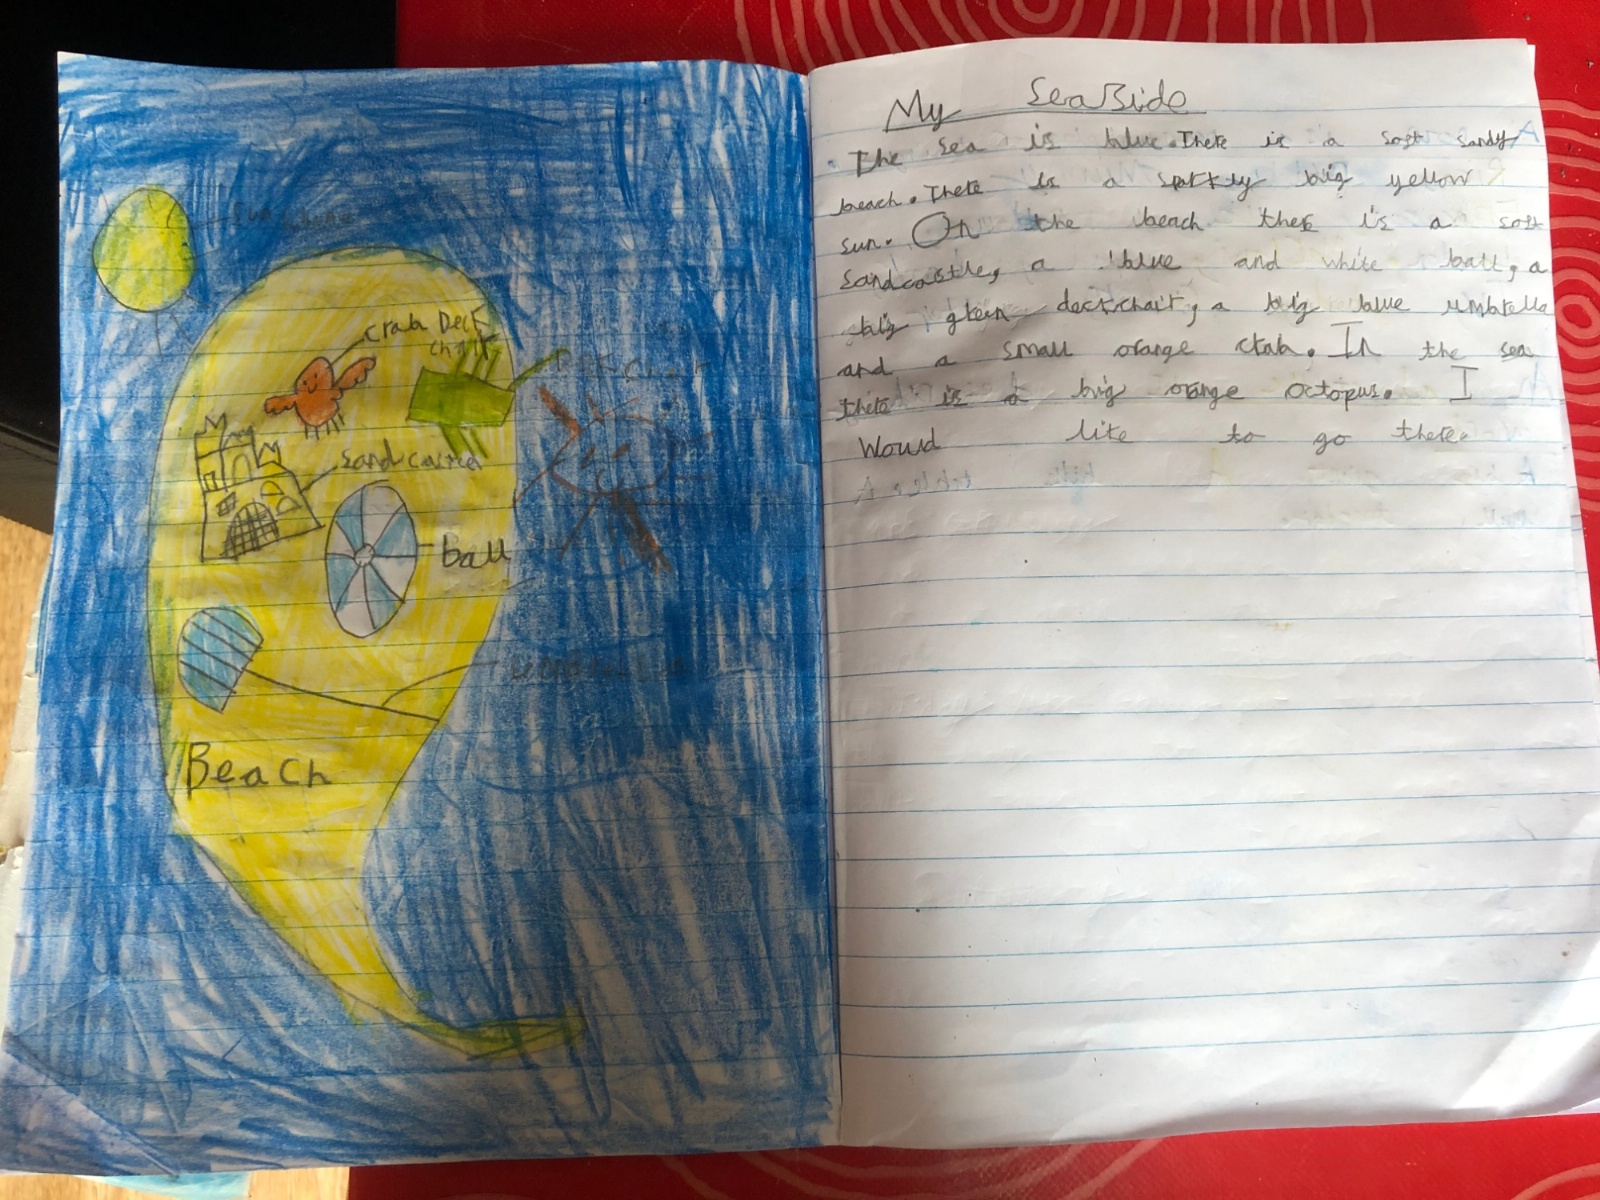 Sun shine
crab Deck
chair
Deck Chair
Sand castle
ball
Beach
My SeaSide
The sea is blue. There is a soft sandy
beach. There is a sparkly big yellow
sun. On the beach there is a soft
sandcastle, a blue and white ball, a
big green deckchair, a big blue umbrella
and a small orange crab. In the sea
there is a big orange octopus. I
Would like to go there.